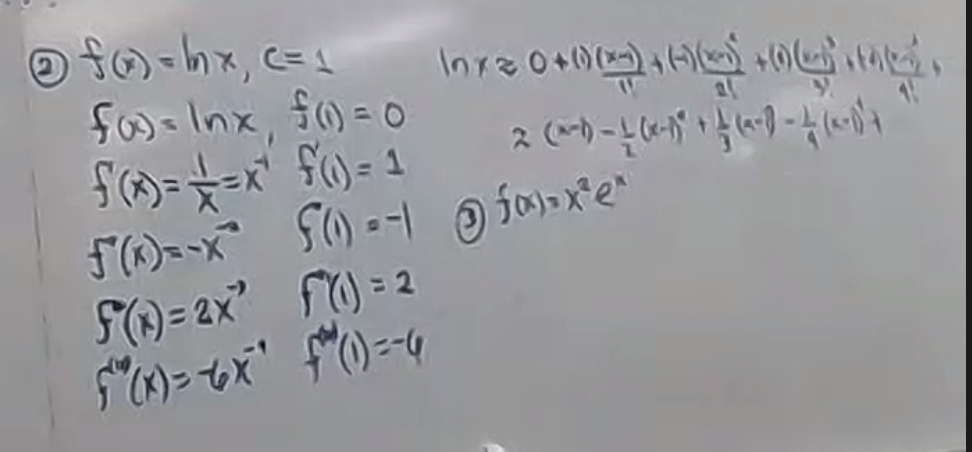 ② f(x) = ln x, c = 1
f(x) = ln x, f(1) = 0
f'(x) = 1/x = x⁻¹ f'(1) = 1
f''(x) = -x⁻² f''(1) = -1
f'''(x) = 2x⁻³ f'''(1) = 2
f⁽⁴⁾(x) = -6x⁻⁴ f⁽⁴⁾(1) = -6
ln x ≈ 0 + (1)(x-1)/1! + (-1)(x-1)²/2! + (x-1)³/3! + (x-1)⁴/4! +
≈ (x-1) - 1/2 (x-1)² + 1/3 (x-1)³ - 1/4 (x-1)⁴ +
③ f(x) = x² eˣ